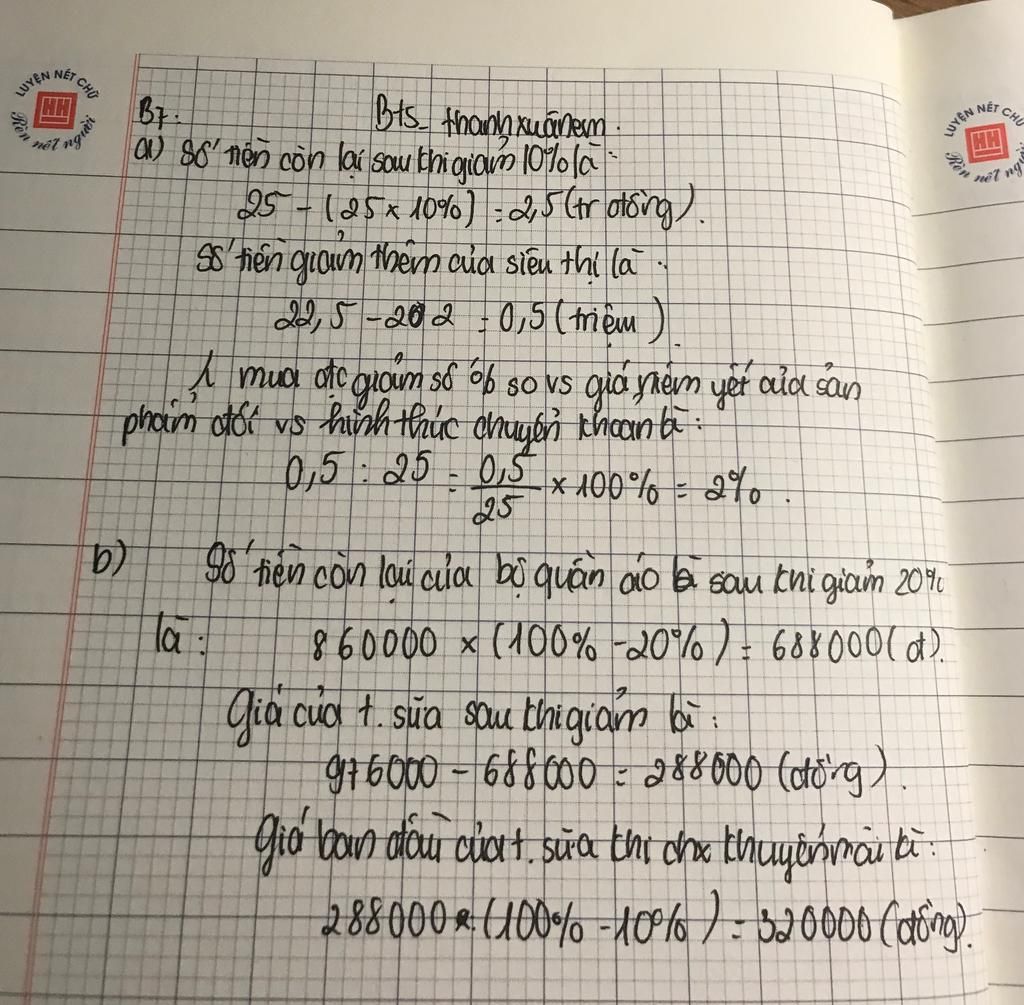 LUYỆN NÉT CHỮ
HH
Rèn nết người
LUYỆN NÉT CHỮ
HH
Rèn nết người
B7.
Bts_ thanhxuânem.
a) Số tiền còn lại sau khi giảm 10% là:
25 - (25 x 10%) = 2,5 (tr đồng).
Số tiền giảm thêm của siêu thị là:
22,5 - 22 = 0,5 (triệu).
mua đc giảm số % so vs giá niêm yết của sản
phẩm đối vs hình thức chuyển khoản là:
0,5 : 25 = 0,5/25 x 100% = 2%.
b) Số tiền còn lại của bộ quần áo sau khi giảm 20%
là: 860000 x (100% - 20%) = 688000 (đ).
Giá của t. sữa sau khi giảm là:
976000 - 688000 = 288000 (đồng).
Giá ban đầu của t. sữa khi chx khuyến mãi là:
288000 : (100% - 10%) = 320000 (đồng).